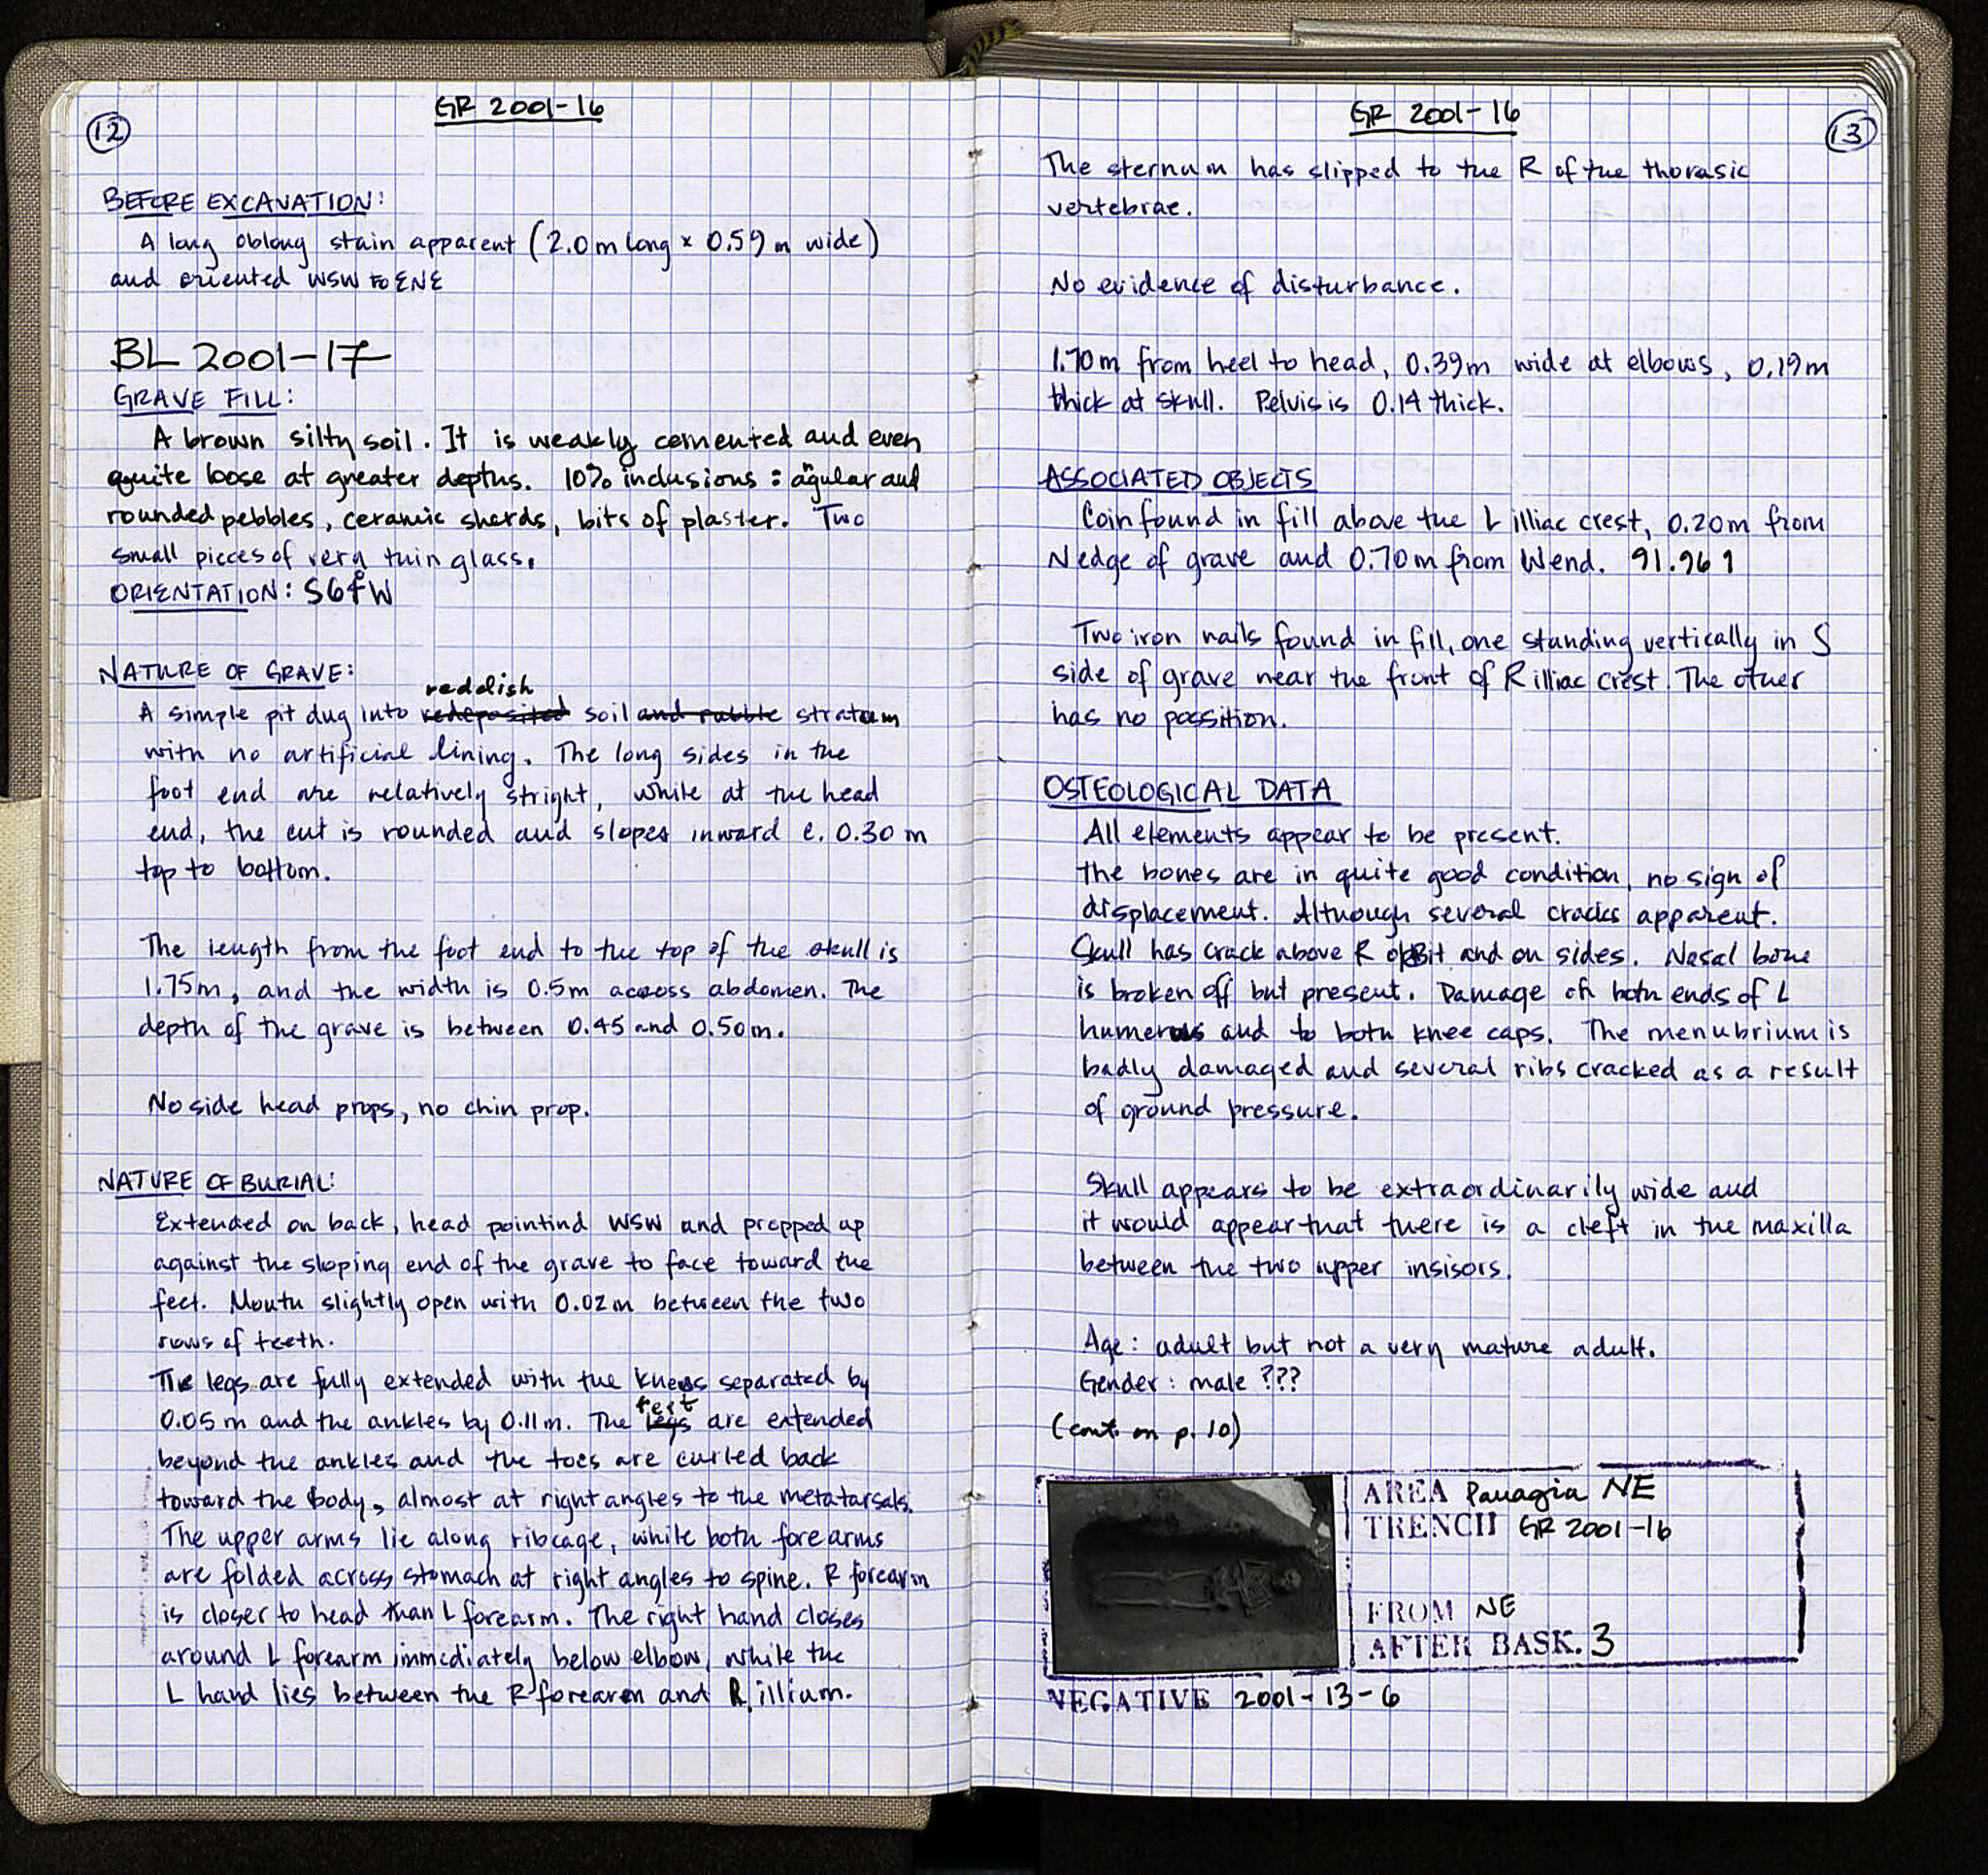 12
GR 2001-16
BEFORE EXCAVATION:
A long oblong stain apparent (2.0m long × 0.59m wide)
and oriented WSW to ENE
BL 2001-17
GRAVE FILL:
A brown silty soil. It is weakly cemented and even
quite loose at greater depths. 10% inclusions: angular and
rounded pebbles, ceramic sherds, bits of plaster. Two
small pieces of very thin glass.
ORIENTATION:
NATURE OF GRAVE:
reddish
A simple pit dug into redeposited soil and rubble stratum
with no artificial lining. The long sides in the
foot end are relatively stright, while at the head
end, the cut is rounded and slopes inward c. 0.30 m
top to bottom.
The length from the foot end to the top of the skull is
1.75m, and the width is 0.5m across abdomen. The
depth of the grave is between 0.45 and 0.50m.
No side head props, no chin prop.
NATURE OF BURIAL:
Extended on back, head pointind WSW and propped up
against the sloping end of the grave to face toward the
feet. Mouth slightly open with 0.02m between the two
rows of teeth.
The legs are fully extended with the knees separated by
feet
0.05 m and the ankles by 0.11m. The legs are extended
beyond the ankles and the toes are curled back
toward the body, almost at right angles to the metatarsals.
The upper arms lie along ribcage, while both forearms
are folded across stomach at right angles to spine. R forearm
is closer to head than L forearm. The right hand closes
around L forearm immediately below elbow, while the
L hand lies between the R forearm and R illium.
GR 2001-16
13
The sternum has slipped to the R of the thorasic
vertebrae.
No evidence of disturbance.
1.70m from heel to head, 0.39m wide at elbows, 0.19m
thick at skull. Pelvis is 0.14 thick.
ASSOCIATED OBJECTS
Coin found in fill above the L illiac crest, 0.20m from
N edge of grave and 0.70m from W end. 91.961
Two iron nails found in fill, one standing vertically in S
side of grave near the front of R illiac crest. The other
has no possition.
OSTEOLOGICAL DATA
All elements appear to be present.
The bones are in quite good condition, no sign of
displacement. Although several cracks apparent.
Skull has crack above R orbit and on sides. Nasal bone
is broken off but present. Damage on both ends of L
humerus and to both knee caps. The menubrium is
badly damaged and several ribs cracked as a result
of ground pressure.
Skull appears to be extraordinarily wide and
it would appear that there is a cleft in the maxilla
between the two upper insisors.
Age: adult but not a very mature adult.
Gender: male ???
(cont. on p. 10)
AREA Panagia NE
TRENCH GR 2001-16
FROM NE
AFTER BASK. 3
NEGATIVE 2001-13-6